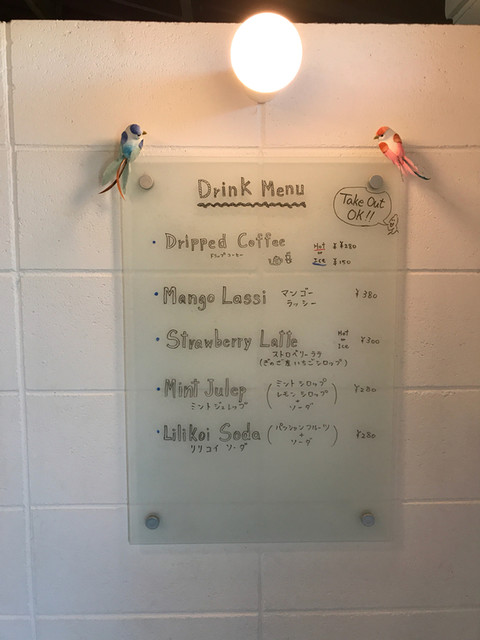 Drink Menu
Take Out
OK!!
• Dripped Coffee Hot ¥280
ドリップコーヒー Ice ¥150
• Mango Lassi マンゴー ¥380
ラッシー
• Strawberry Latte Hot or Ice ¥300
ストロベリーラテ
いちごシロップ)
• Mint Julep (ミントシロップ ¥280
ミントジュレップ レモンシロップ
+
ソーダ)
• Lilikoi Soda (パッションフルーツ ¥280
リリコイ ソーダ +
ソーダ)